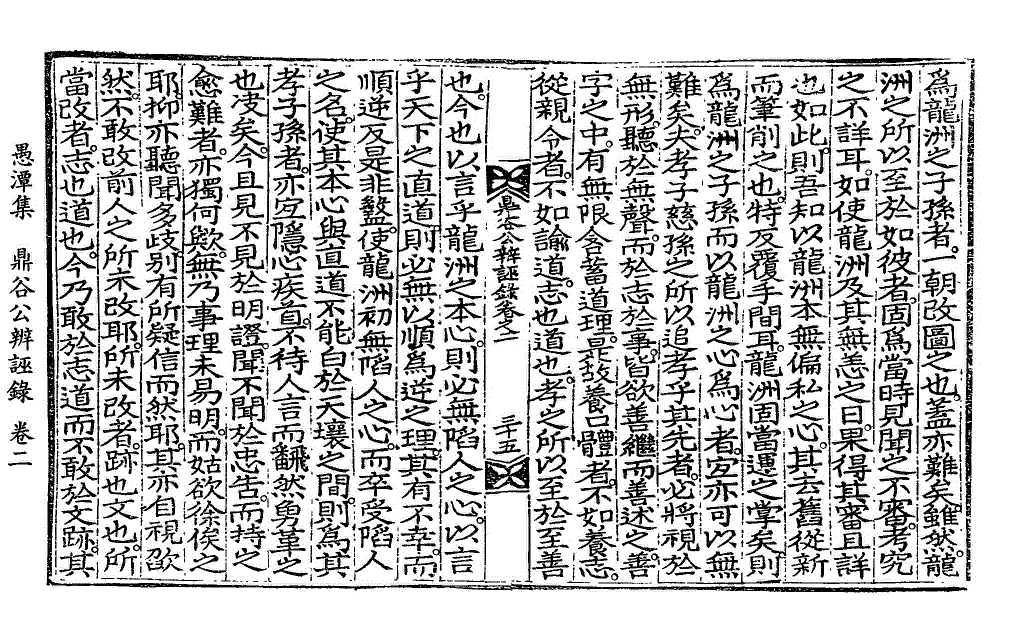 爲龍洲之子孫者一朝改圖之也蓋亦難矣雖然龍
洲之所以至於如彼者固爲當時見聞之不審考究
之不詳耳如使龍洲及其無恙之日果得其審且詳
也如此則吾知以龍洲本無偏私之心其去舊從新
而筆削之也特反覆手間耳龍洲固當還之掌矣則
爲龍洲之子孫而以龍洲之心爲心者宜亦可以無
難矣夫孝子慈孫之所以追孝乎其先者必將視於
無形聽於無聲而於志於事皆欲善繼而善述之善
字之中有無限含蓄道理是故養口體者不如養志
從親令者不如諭道志也道也孝之所以至於至善
鼎谷公辨誣錄卷之二
三十五
也今也以言乎龍洲之本心則必無陷人之心以言
乎天下之直道則必無以順爲逆之理其有不幸而
順逆反是非盩使龍洲初無陷人之心而卒受陷人
之名使其本心與直道不能白於天壤之間則爲其
孝子孫者亦宜隱心疾首不待人言而飜然勇革之
也淩矣今且見不見於明證聞不聞於忠告而持之
愈難者亦獨何歟無乃事理未易明而姑欲徐俟之
耶抑亦聽聞多歧別有所疑信而然耶其亦自視欿
然不敢改前人之所未改耶所未改者跡也文也所
當改者志也道也今乃敢於志道而不敢於文跡其
愚潭集　鼎谷公辨誣錄　卷二